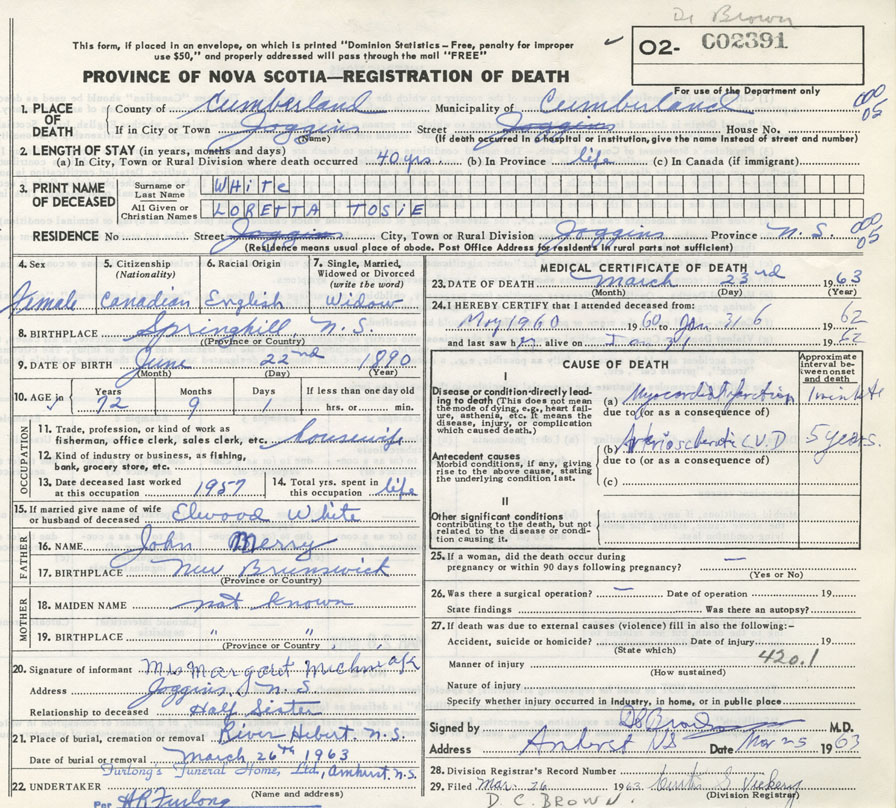 Dr Brown
This form, if placed in an envelope, on which is printed "Dominion Statistics – Free, penalty for improper
use $50," and properly addressed will pass through the mail "FREE"
02- C02391
PROVINCE OF NOVA SCOTIA—REGISTRATION OF DEATH
For use of the Department only
1. PLACE OF DEATH County of Cumberland Municipality of Cumberland 000 05
If in City or Town Joggins Street Joggins House No.
(Name) (If death occurred in a hospital or institution, give the name instead of street and number)
2. LENGTH OF STAY (in years, months and days)
(a) In City, Town or Rural Division where death occurred 40 yrs. (b) In Province life (c) In Canada (if immigrant)
3. PRINT NAME OF DECEASED Surname or Last Name White
All Given or Christian Names LORETTA TOSIE
RESIDENCE No Street Joggins City, Town or Rural Division Joggins Province N.S. 000 05
(Residence means usual place of abode. Post Office Address for residents in rural parts not sufficient)
4. Sex 5. Citizenship (Nationality) 6. Racial Origin 7. Single, Married, Widowed or Divorced (write the word)
Female Canadian English Widow
8. BIRTHPLACE Springhill, N.S.
(Province or Country)
9. DATE OF BIRTH June 22nd 1890
(Month) (Day) (Year)
10. AGE in Years Months Days If less than one day old
72 9 1 hrs. or min.
OCCUPATION
11. Trade, profession, or kind of work as
fisherman, office clerk, sales clerk, etc. housewife
12. Kind of industry or business, as fishing,
bank, grocery store, etc.
13. Date deceased last worked at this occupation 1957 14. Total yrs. spent in this occupation life
15. If married give name of wife or husband of deceased Elwood White
FATHER
16. NAME John Merry
17. BIRTHPLACE New Brunswick
(Province or Country)
MOTHER
18. MAIDEN NAME not known
19. BIRTHPLACE " "
(Province or Country)
20. Signature of informant Mrs Margaret
Address Joggins, N.S.
Relationship to deceased Half Sister
21. Place of burial, cremation or removal River Hebert. N.S.
Date of burial or removal March 26th 1963
Furlong's Funeral Home, Ltd, Amherst, N.S.
22. UNDERTAKER (Name and address)
Per Furlong
MEDICAL CERTIFICATE OF DEATH
23. DATE OF DEATH March 23rd 1963
(Month) (Day) (Year)
24. I HEREBY CERTIFY that I attended deceased from:
May 1960 1960 to Jan 31 1962
and last saw her alive on Jan 31 1962
CAUSE OF DEATH
Approximate interval between onset and death
I
Disease or condition-directly leading to death (This does not mean the mode of dying, e.g., heart failure, asthenia, etc. It means the disease, injury, or complication which caused death.)
(a) Myocardial infarction 1 minute
due to (or as a consequence of)
Antecedent causes
Morbid conditions, if any, giving rise to the above cause, stating the underlying condition last.
(b) Arteriosclerotic C.V.D 5 years.
due to (or as a consequence of)
(c)
II
Other significant conditions
contributing to the death, but not related to the disease or condition causing it.
25. If a woman, did the death occur during
pregnancy or within 90 days following pregnancy? —
(Yes or No)
26. Was there a surgical operation? — Date of operation 19
State findings Was there an autopsy?
27. If death was due to external causes (violence) fill in also the following:–
Accident, suicide or homicide? Date of injury 19
(State which) 420.1
Manner of injury
(How sustained)
Nature of injury
Specify whether injury occurred in Industry, in home, or in public place
Signed by M.D.
Address Amherst NS Date Mar 25 1963
28. Division Registrar's Record Number
29. Filed Mar. 26 1963 Curtis S Vickery
(Division Registrar)
D. C. BROWN.